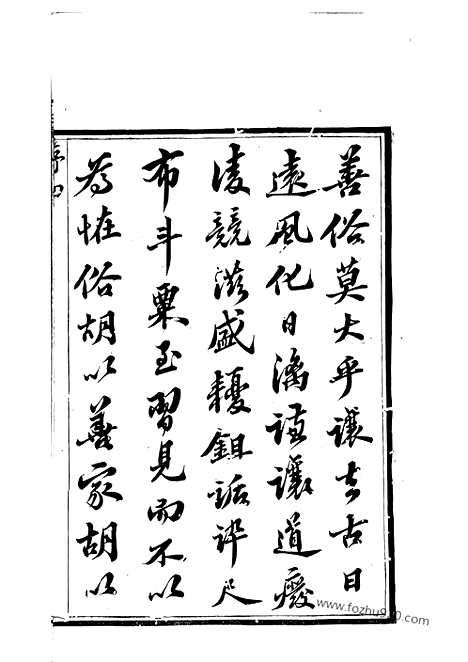 善俗莫大乎讓去古日
遠風化日漓謙讓道廢
淩競滋盛耰鉏詬誶尺
布斗粟至習見而不以
為怪俗胡以善家胡以
序四
www.fozhu920.com